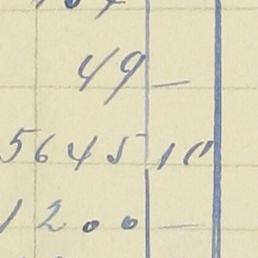 49 —
5645 10
1200 —